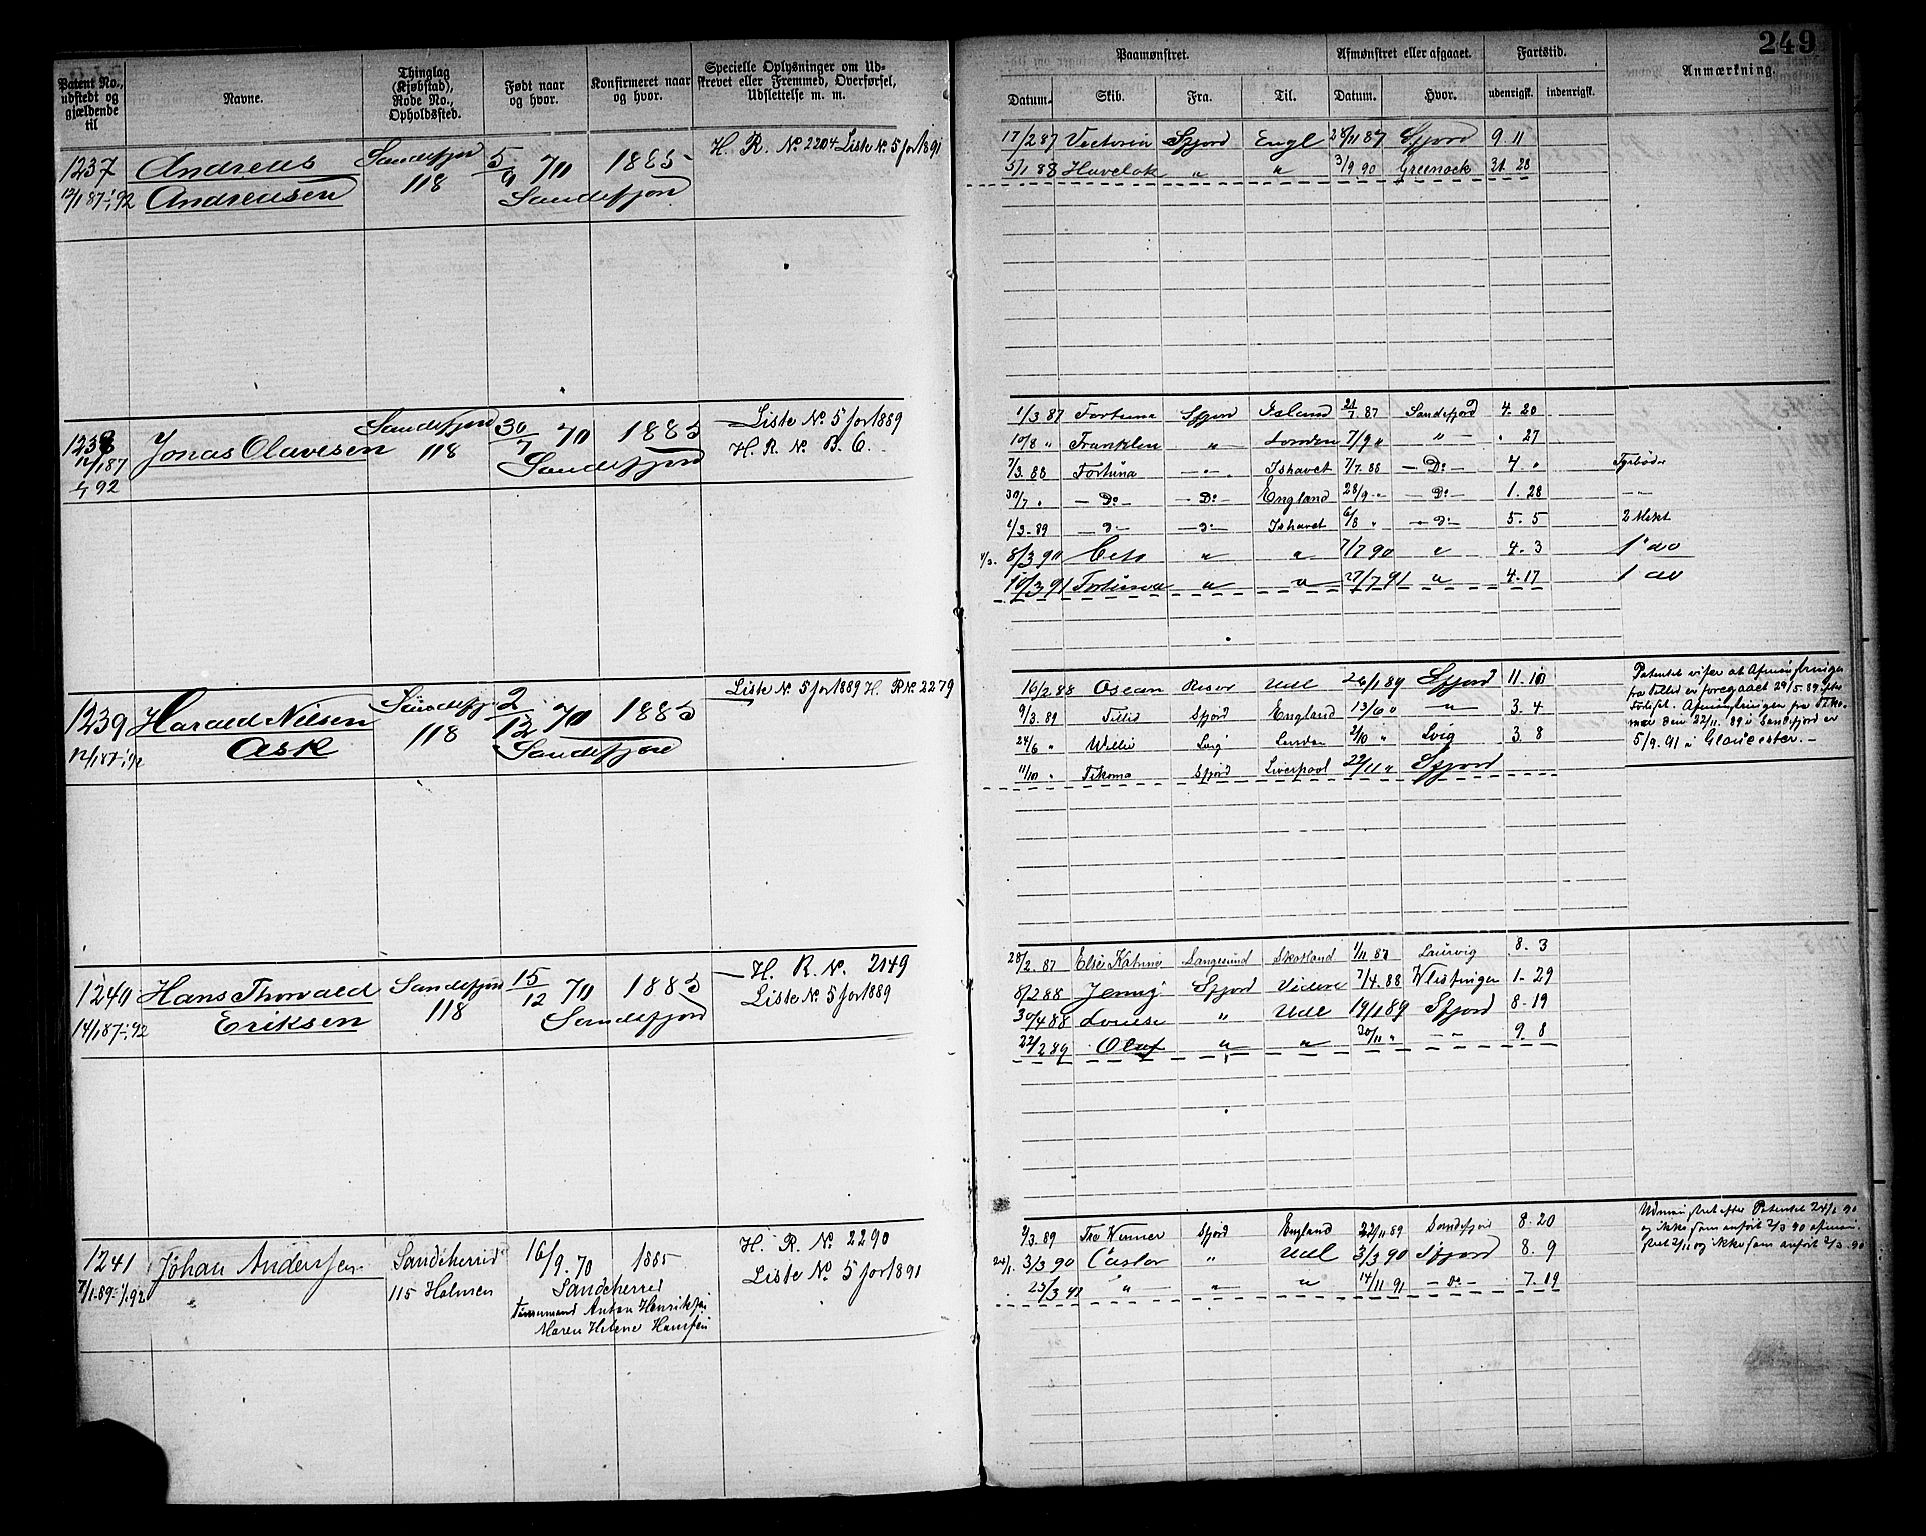 249
Patent No., udstedt og gjældende til
Navne.
Thinglag (Kjøbstad), Rode No., Opholdssted.
Født naar og hvor.
Konfirmeret naar og hvor.
Specielle Oplysninger om Udskrevet eller Fremmed, Overførsel, Udslettelse m. m.
Paamønstret.
Afmønstret eller afgaaet.
Fartstid.
Anmærkning.
Datum. Skib. Fra. Til. Datum. Hvor. udenrigsk. indenrigsk.
1237 Andreas Sandefjord 5/9 70 1885 H. R. No 2204 Liste No. 5 for 1891
12/1 87-1/1 92 Andreasen 118 Sandefjord
17/2 87 Victoria Sfjord Engl 28/11 87 Sfjord 9. 11
5/1 88 Havelok " " 3/9 90 Greenock 31. 28
1238 Jonas Olavesen Sandefjord 30/7 70 1885 Liste No. 5 for 1889
12/1 87 118 Sandefjord H. R. No. B. C.
1/1 92
1/3 87 Fortuna Sfjord Island 21/7 87 Sandefjord 4. 20
10/8 " Franklin " London 7/9 " " 27
/3 88 Fortuna " Ishavet 7/7 88 Do 4. " Fyrbøder
30/7 " Do Do England 28/9 " Do 1. 28 "
/3 89 Do Do Ishavet 6/8 " Do 5. 5 2 Mskt
8/3 90 " " 7/7 90 " 4. 3 1 do
10/3 91 Fortuna " " 27/7 91 " 4. 17 1 do
1239 Harald Nilsen Sandefjord 2/12 70 1885 Liste No. 5 for 1889 H. R No. 2279
12/1 87-1/1 92 Ask 118 Sandefjord
16/2 88 Osean Risør Udl 26/1 89 Sfjord 11. 10
9/3 89 Tillid Sfjord England 13/6 " " 3. 4
24/6 " Willie Lvig London 2/10 " Lvig 3. 8
11/10 " Tikoma Sfjord Liverpool 22/11 " Sfjord
Patentet viser at Afmønstringen
fra Tillid er foregaaet 29/5. 89 efter
Forlisf. Afmønstringen fra Tiko-
ma den 22/11. 89 i Sandefjord er
5/9. 91 i Gloucester.
1240 Hans Thorvald Sandefjord 15/12 70 1885 H. R. No. 2149
14/1 87-1/1 92 Eriksen 118 Sandefjord Liste No. 5 for 1889
28/2. 87 Else Katrine Langesund Skotland 1/11 87 Laurvig 8. 3
8/2 88 Jenny Sfjord Videre 7/4. 88 Vlissingen 1. 29
30/4 88 Louise " Udl 19/1 89 Sfjord 8. 19
22/2 89 Oluf " " 30/11 " " 9. 8
1241 Johan Andersen Sandeherred 16/9. 70 1885 H. R. No 2290
7/1. 89-1/1. 92 115 Holmen Sandeherred Liste No. 5 for 1891
Tømmermand Anton Henriksen
Maren Helene Hansen
2/3. 89 Tre Venner Sfjord England 22/11 89 Sandefjord 8. 20
24/1. 3/3 90 Castor " Udl 3/3 90 Sfjord 8. 9
23/3 91 " " " 14/11 91 Do 7. 19
Udmønstret efter Patentet 24/1 90
og ikke som anført 3/3 90 afmøn-
stret 2/11 og ikke som anført 3/3. 90